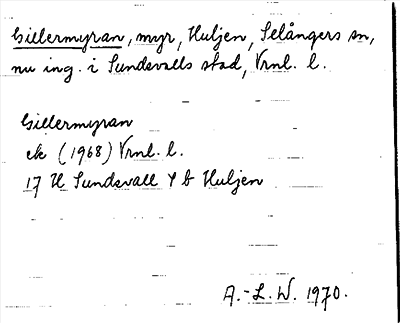 Gillermyran, myr, Huljen, Selångers sn,
nu ing. i Sundsvalls stad, Vrnl. l.
Gillermyran
ek (1968) Vrnl. l.
17 H Sundsvall 9 b Huljen
A.-L. W. 1970.